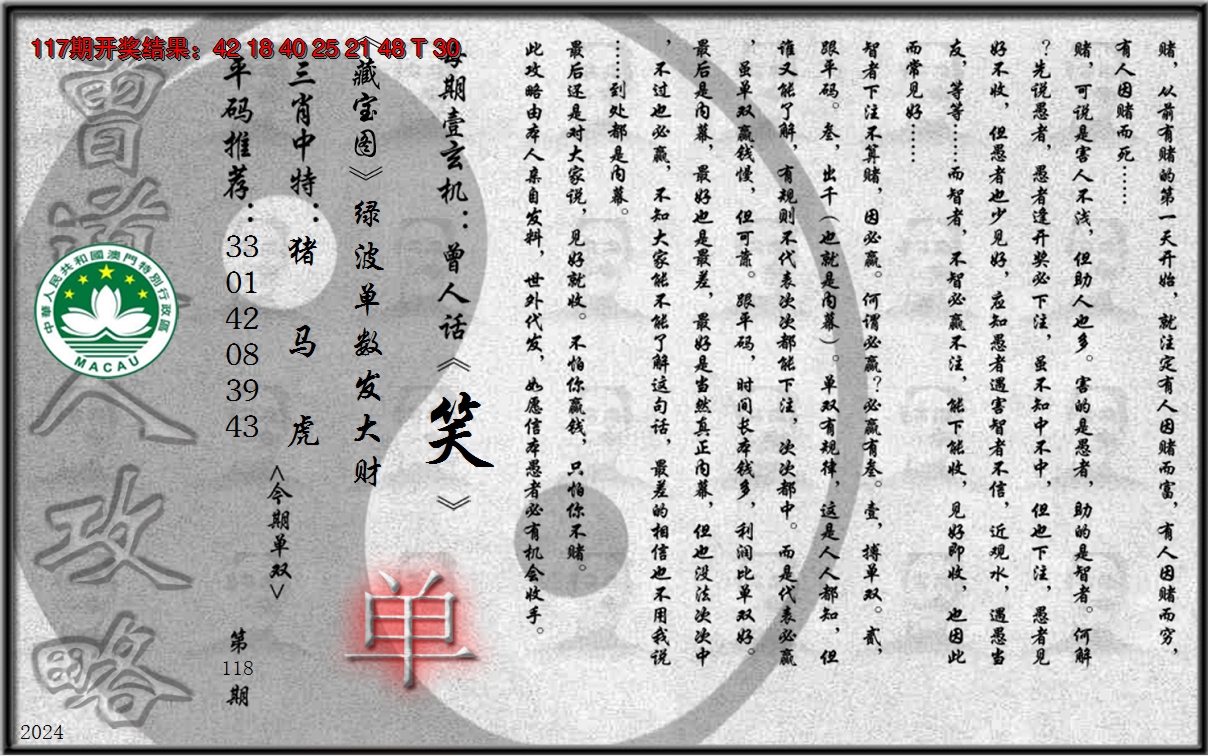 117期开奖结果：42 18 40 25 21 48 T 30
赌，从前有赌的第一天开始，就注定有人因赌而富，有人因赌而穷，
有人因赌而死……
赌，可说是害人不浅，但助人也多。害的是愚者，助的是智者。何解
？先说愚者，愚者逢开奖必下注，虽不知中不中，但也下注，愚者见
好不收，但愚者也少见好，应知愚者遇害智者不信，近观水，遇愚当
友，等等……而智者，不智必赢不注，能下能收，见好即收，也因此
而常见好……
智者下注不算赌，因必赢。何谓必赢？必赢有叁。壹，搏单双。贰，
跟平码。叁，出千（也就是内幕）。单双有规律，这是人人都知，但
谁又能了解，有规则不代表次次都能下注，次次都中。而是代表必赢
，虽单双赢钱慢，但可靠。跟平码，时间长本钱多，利润比单双好。
最后是内幕，最好也是最差，最好是当然真正内幕，但也没法次次中
，不过也必赢，不知大家能不能了解这句话，最差的相信也不用我说
……到处都是内幕。
最后还是对大家说，见好就收。不怕你赢钱，只怕你不赌。
此攻略由本人亲自发料，世外代发，如愿信本愚者必有机会收手。
每期壹玄机：曾人话《笑》
《藏宝图》绿波单数发大财
三肖中特：猪 马 虎
<今期单双>
单
平码推荐：
33
01
42
08
39
43
第
118
期
曾道人攻略
中華人民共和國澳門特別行政區
MACAU
2024